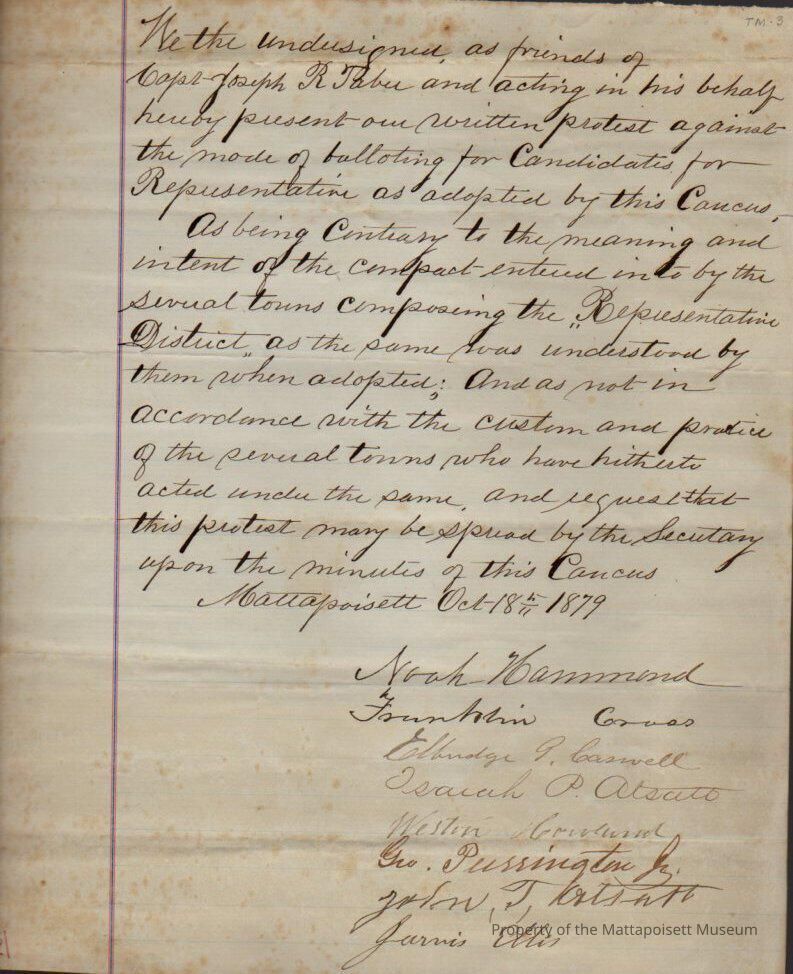 TM-3
We the undersigned, as friends of
Capt Joseph R Taber and acting in his behalf
hereby present our written protest against
the mode of balloting for Candidates for
Representative as adopted by this Caucus,
As being Contrary to the meaning and
intent of the compact entered into by the
several towns composing the "Representative
District" as the same was understood by
them when adopted; And as not in
accordance with the custom and practice
of the several towns who have hitherto
acted under the same, and request that
this protest may be spread by the Secretary
upon the minutes of this Caucus
Mattapoisett Oct 18th 1879
Noah Hammond
Franklin Cross
Elbridge G. Caswell
Isaiah P. Atsatt
Weston Howland
Geo. Purrington Jr.
John T. Atsatt
Jarvis Ellis
Property of the Mattapoisett Museum